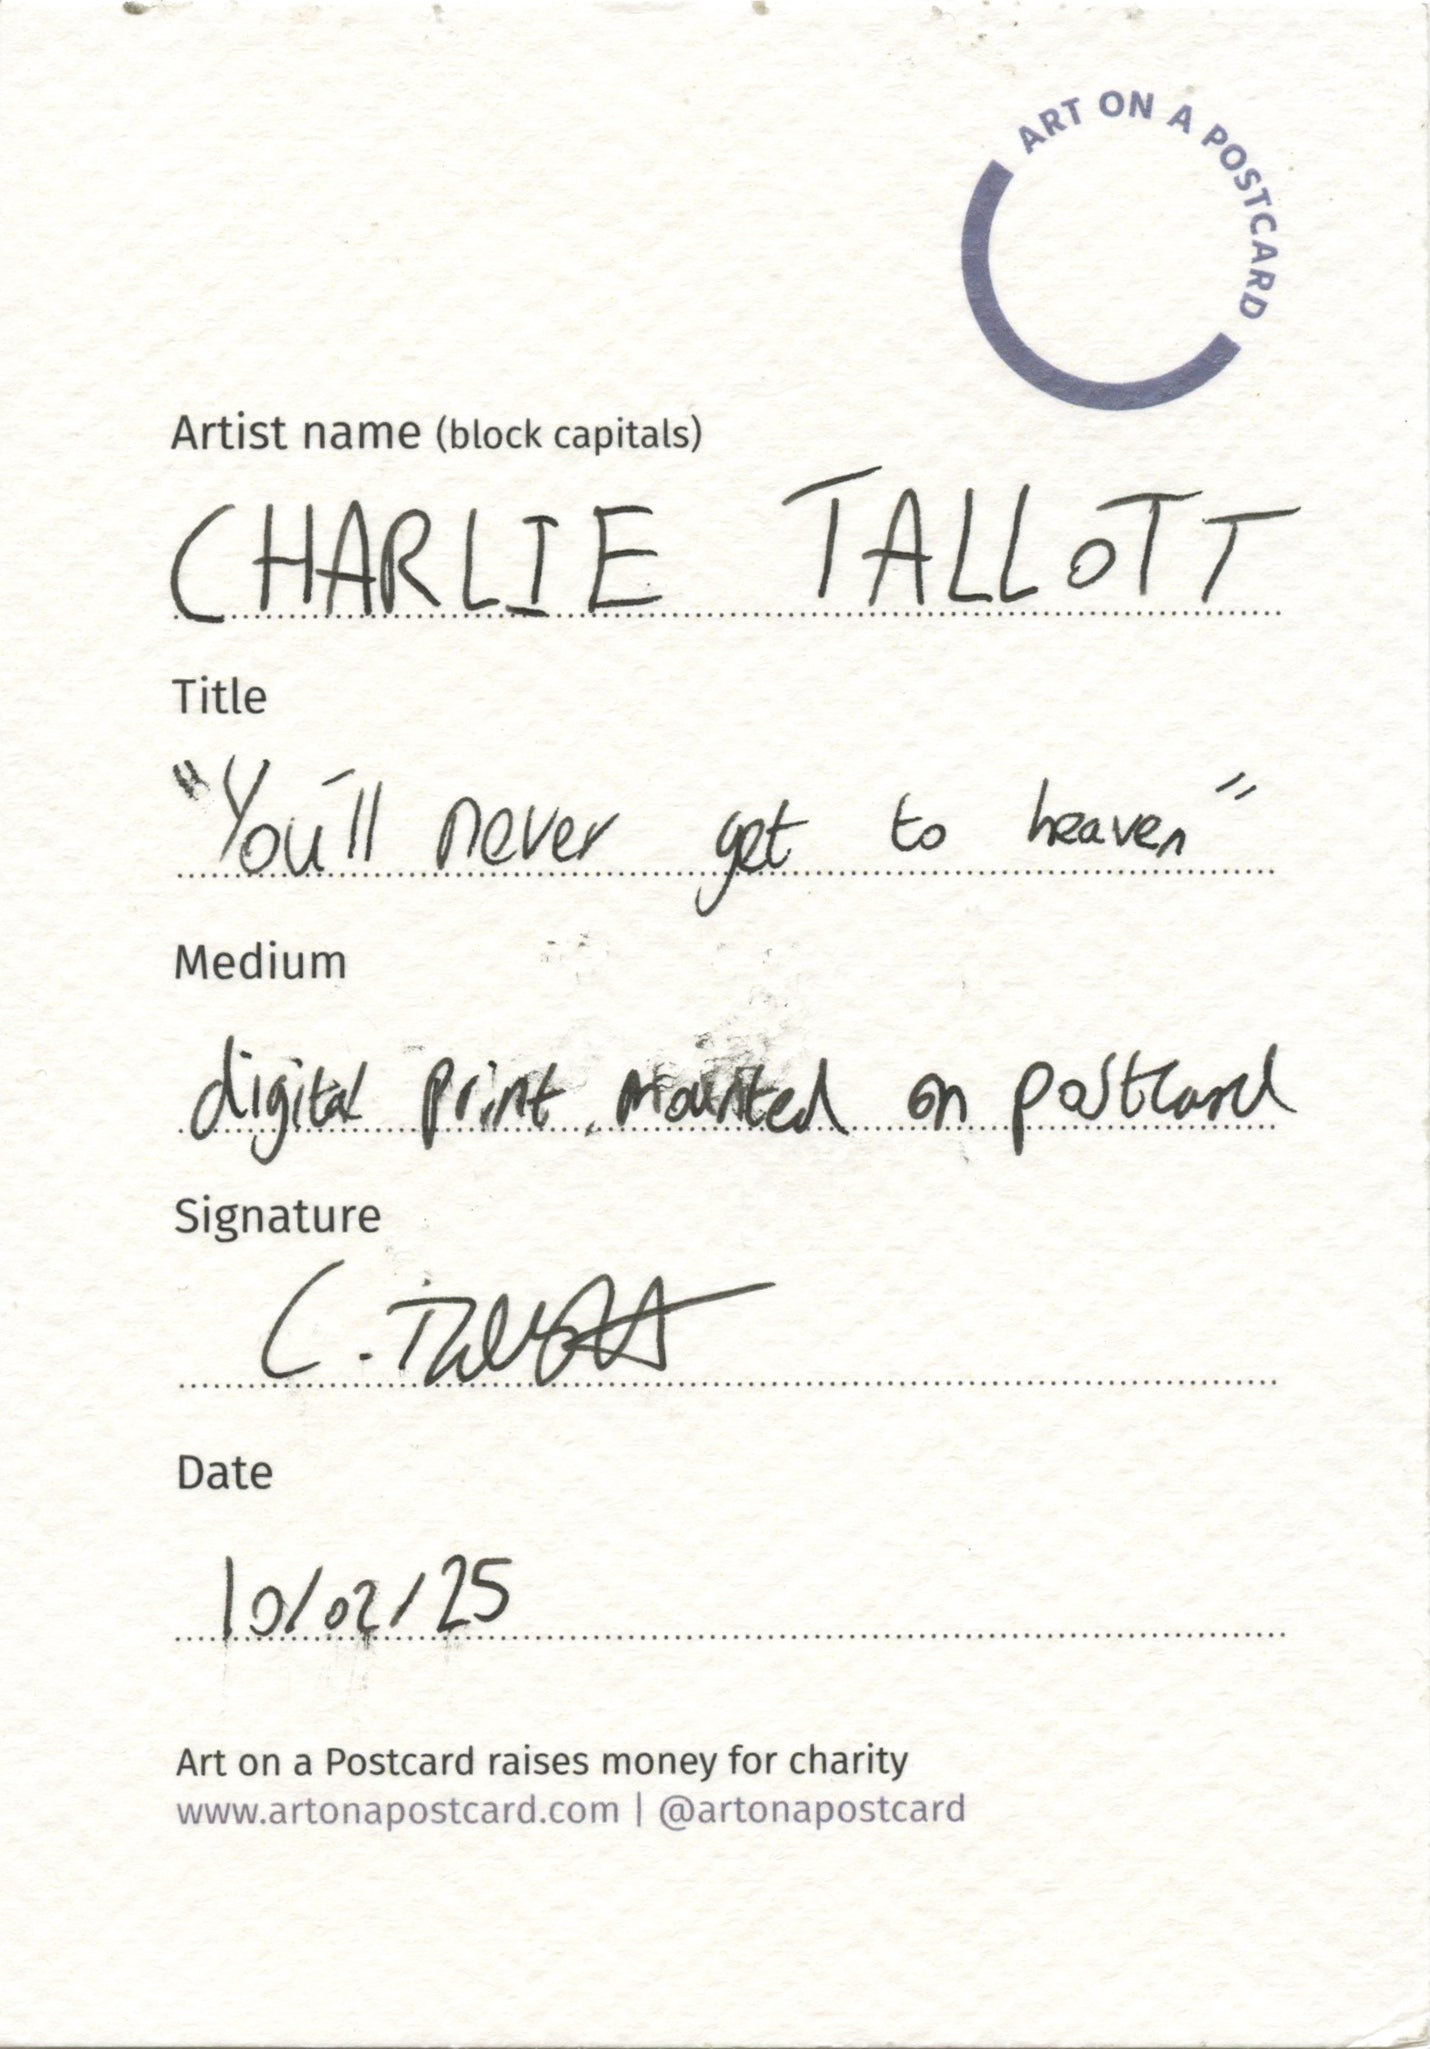 ART ON A POSTCARD
Artist name (block capitals)
CHARLIE TALLOTT
Title
"You'll never get to heaven"
Medium
digital print, mounted on postcard
Signature
C. Tallott
Date
10/02/25
Art on a Postcard raises money for charity
www.artonapostcard.com | @artonapostcard